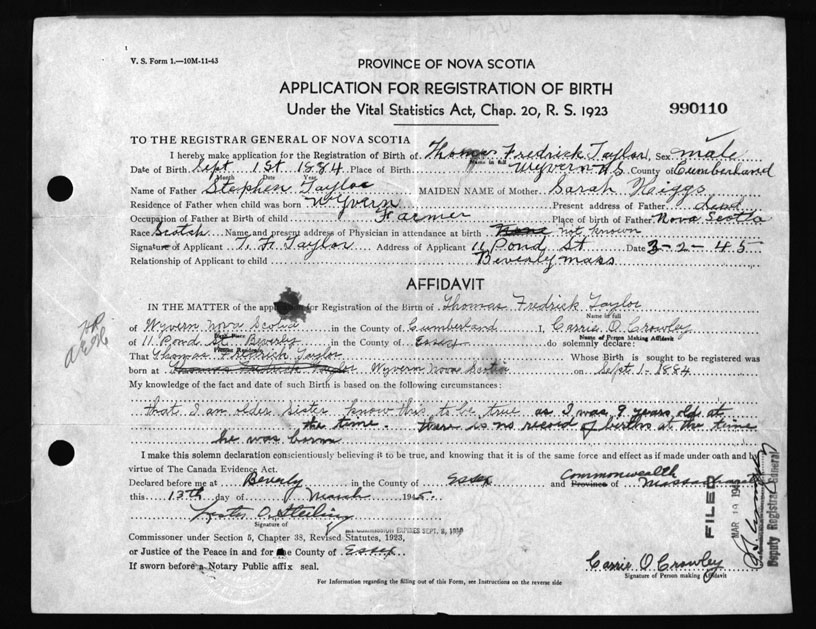 V. S. Form 1.—10M-11-43
PROVINCE OF NOVA SCOTIA
APPLICATION FOR REGISTRATION OF BIRTH
Under the Vital Statistics Act, Chap. 20, R. S. 1923
990110
TO THE REGISTRAR GENERAL OF NOVA SCOTIA
I hereby make application for the Registration of Birth of Thomas Fredrick Taylor, Sex male
Name in full
Date of Birth Sept 1st 1884 Place of Birth Wyvern N.S. County of Cumberland
Month Date Year
Name of Father Stephen Taylor MAIDEN NAME of Mother Sarah Niggs
Residence of Father when child was born Wyvern Present address of Father dead
Occupation of Father at Birth of child Farmer Place of birth of Father Nova Scotia
Race Scotch Name and present address of Physician in attendance at birth None not known
Signature of Applicant T. F. Taylor Address of Applicant 11 Pond St Date 3-2-45
Relationship of Applicant to child Beverly mass
AFFIDAVIT
IN THE MATTER of the application for Registration of the Birth of Thomas Fredrick Taylor
Name in full
of Wyvern Nova Scotia in the County of Cumberland I, Carrie O. Crowley
Name of Person Making Affidavit
of 11 Pond St Beverly in the County of Essex do solemnly declare:
Present Residence
That Thomas Fredrick Taylor Whose Birth is sought to be registered was
born at Thomas Fredrick Taylor Wyvern Nova Scotia on Sept 1-1884
My knowledge of the fact and date of such Birth is based on the following circumstances:
that I am older sister know this to be true as I was 9 years old at
the time. there is no record of births at the time
he was born
I make this solemn declaration conscientiously believing it to be true, and knowing that it is of the same force and effect as if made under oath and by
virtue of The Canada Evidence Act.
Declared before me at Beverly in the County of Essex and Province of Commonwealth Massachusetts
this 12th day of March 1945.
Signature of
MY COMMISSION EXPIRES SEPT. 8,
Commissioner under Section 5, Chapter 38, Revised Statutes, 1923,
or Justice of the Peace in and for the County of Essex
If sworn before a Notary Public affix seal.
Carrie O Crowley
Signature of Person making Affidavit
For Information regarding the filling out of this Form, see Instructions on the reverse side
FILED
MAR 19 194
Deputy Registrar General